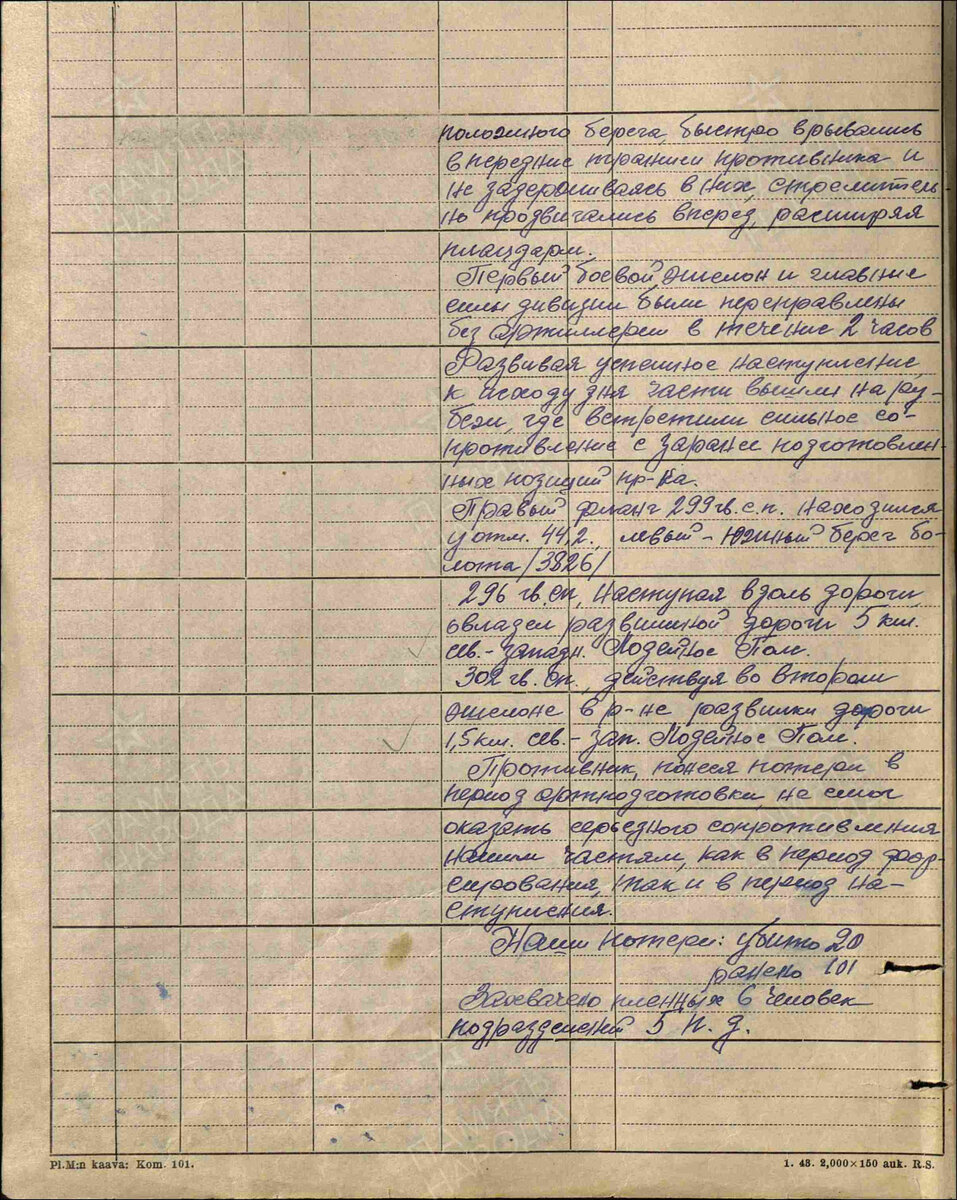 положного берега, быстро врывались
в передние траншеи противника и
не задерживаясь в них, стремитель
но продвигались вперед, расширяя
плацдарм.
Первый боевой эшелон и главные
силы дивизии были переправлены
без артиллерии в течение 2 часов
Развивая успешное наступление,
к исходу дня части вышли на ру-
беж, где встретили сильное со-
противление с заранее подготовлен-
ных позиций пр-ка.
Правый фланг 299 гв.с.п. находился
у отм. 44,2, левый - южный берег бо-
лота /3826/
296 гв.сп, наступая вдоль дороги,
овладел развилкой дороги 5 км.
сев.-западн. Лодейное Поле.
302 гв.сп., действуя во втором
эшелоне в р-не развилки дороги
1,5 км. сев.-зап. Лодейное Поле.
Противник, понеся потери в
период артподготовки, не смог
оказать серьезного сопротивления
нашим частям, как в период фор-
сирования, так и в период на-
ступления.
Наши потери: убито 20
ранено 101
Захвачено пленных 6 человек
подразделений 5 п.д.
Pl.M:n kaava: Kom. 101.
1. 43. 2,000×150 auk. R.S.
ПАМЯТЬ
НАРОДА
ПАМЯТЬ
НАРОДА